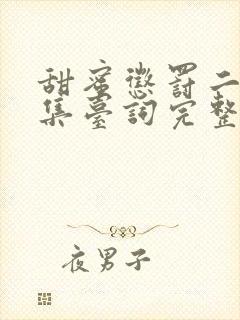 甜蜜懲罰二
集臺詞完整
夜男子